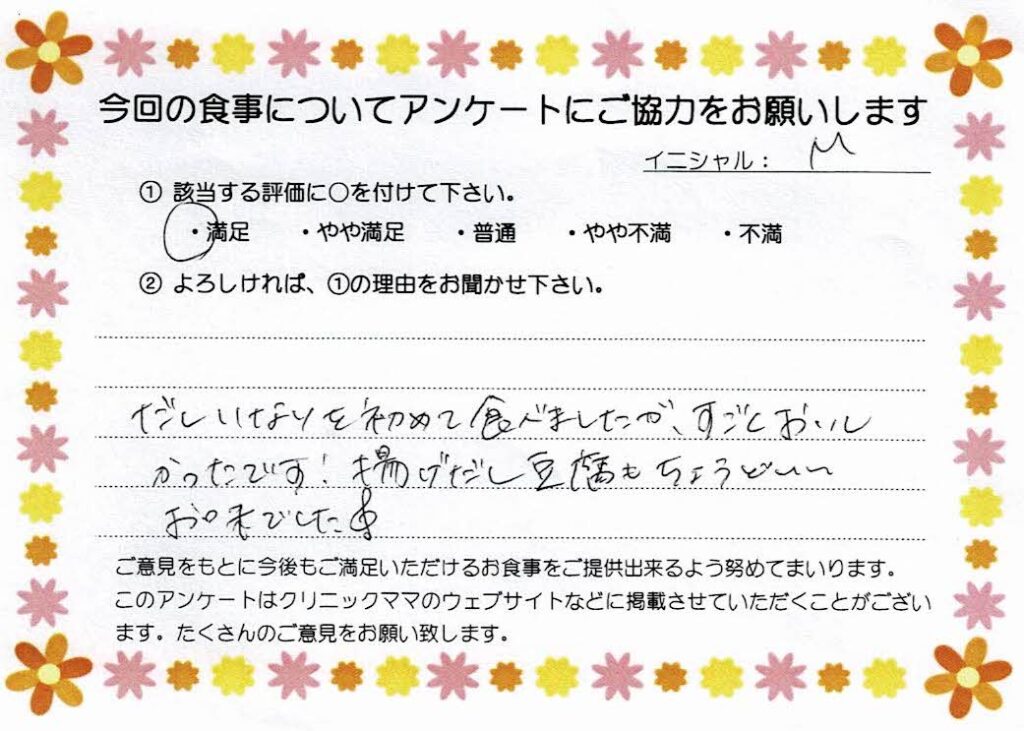 今回の食事についてアンケートにご協力をお願いします
イニシャル： M
① 該当する評価に○を付けて下さい。
・満足 ・やや満足 ・普通 ・やや不満 ・不満
② よろしければ、①の理由をお聞かせ下さい。
だしいなりを初めて食べましたが、すごくおいし
かったです！揚げだし豆腐もちょうどいい
お味でした
ご意見をもとに今後もご満足いただけるお食事をご提供出来るよう努めてまいります。
このアンケートはクリニックママのウェブサイトなどに掲載させていただくことがござい
ます。たくさんのご意見をお願い致します。